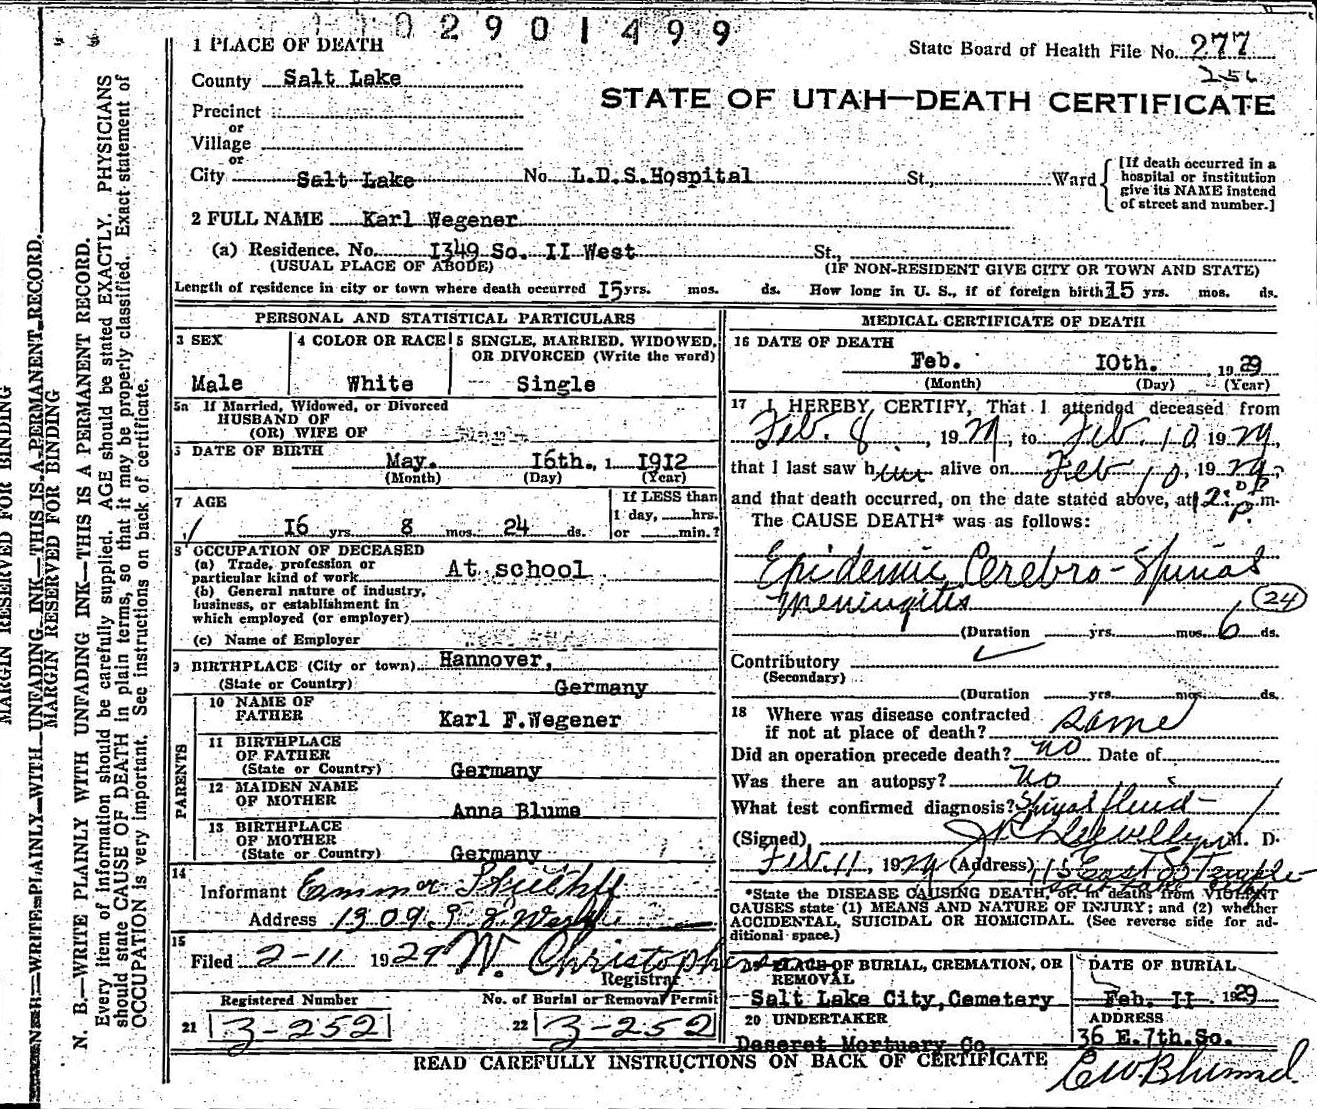 02901499
State Board of Health File No. 277
256
1 PLACE OF DEATH
County Salt Lake
STATE OF UTAH—DEATH CERTIFICATE
Precinct
or
Village
or
City Salt Lake No. L.D.S.Hospital St., Ward
[If death occurred in a hospital or institution give its NAME instead of street and number.]
2 FULL NAME Karl Wegener
(a) Residence. No. I349 So. II West St.,
(USUAL PLACE OF ABODE) (IF NON-RESIDENT GIVE CITY OR TOWN AND STATE)
Length of residence in city or town where death occurred I5 yrs. mos. ds. How long in U. S., if of foreign birth I5 yrs. mos. ds.
PERSONAL AND STATISTICAL PARTICULARS
3 SEX
Male
4 COLOR OR RACE
White
5 SINGLE, MARRIED, WIDOWED, OR DIVORCED (Write the word)
Single
5a If Married, Widowed, or Divorced
HUSBAND OF
(OR) WIFE OF
DATE OF BIRTH May. I6th., 1 1912
(Month) (Day) (Year)
7 AGE
I6 yrs. 8 mos. 24 ds.
If LESS than
1 day, hrs.
or min.?
8 OCCUPATION OF DECEASED
(a) Trade, profession or
particular kind of work At school
(b) General nature of industry,
business, or establishment in
which employed (or employer)
(c) Name of Employer
9 BIRTHPLACE (City or town) Hannover,
(State or Country) Germany
PARENTS
10 NAME OF
FATHER Karl F.Wegener
11 BIRTHPLACE
OF FATHER
(State or Country) Germany
12 MAIDEN NAME
OF MOTHER Anna Blume
13 BIRTHPLACE
OF MOTHER
(State or Country) Germany
14
Informant Emma
Address 1309 S 8 West
15
Filed 2-11 1929 W. Christopherson
Registrar
Registered Number
21 3-252
No. of Burial or Removal Permit
22 3-252
MEDICAL CERTIFICATE OF DEATH
16 DATE OF DEATH
Feb. IOth. 1929
(Month) (Day) (Year)
17 I HEREBY CERTIFY, That I attended deceased from
Feb. 8, 1929, to Feb. 10 1929,
that I last saw him alive on Feb 10, 1929,
and that death occurred, on the date stated above, at 12: P. m.
The CAUSE DEATH* was as follows:
Epidemic Cerebro-Spinal
Meningitis (24)
(Duration yrs. mos. 6 ds.
Contributory
(Secondary)
(Duration yrs. mos. ds.
18 Where was disease contracted
if not at place of death? Same
Did an operation precede death? no Date of
Was there an autopsy? no
What test confirmed diagnosis? Spinal fluid
(Signed) Llewellyn M. D.
Feb. 11, 1929 (Address) 115 East So Temple
*State the DISEASE CAUSING DEATH, or in deaths from VIOLENT
CAUSES state (1) MEANS AND NATURE OF INJURY; and (2) whether
ACCIDENTAL, SUICIDAL OR HOMICIDAL. (See reverse side for ad-
ditional space.)
19 PLACE OF BURIAL, CREMATION, OR
REMOVAL
Salt Lake City,Cemetery
DATE OF BURIAL
Feb. II. 1929
20 UNDERTAKER
Deseret Mortuary Co.
ADDRESS
36 E.7th.So.
READ CAREFULLY INSTRUCTIONS ON BACK OF CERTIFICATE
MARGIN RESERVED FOR BINDING
N. B.—WRITE PLAINLY—WITH UNFADING INK—THIS IS A PERMANENT RECORD.
MARGIN RESERVED FOR BINDING
N. B.—WRITE PLAINLY WITH UNFADING INK—THIS IS A PERMANENT RECORD.
Every item of information should be carefully supplied. AGE should be stated EXACTLY. PHYSICIANS
should state CAUSE OF DEATH in plain terms, so that it may be properly classified. Exact statement of
OCCUPATION is very important. See instructions on back of certificate.